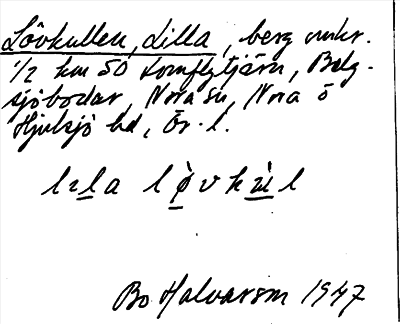 Lövkullen, Lilla, berg omkr.
1/2 km SO Kornflytjärn, Bolg-
sjöbodar, Nora sn, Nora o
Hjulsjö bd, Ör. l.
lılla løvkùl
Bo Halvarson 1947